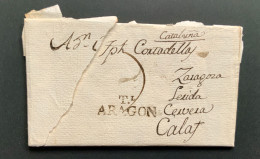 Cataluña
A Dn. Jph Cortadellas
Zaragoza
Lerida
Cervera
Calaf
T.I
ARAGON